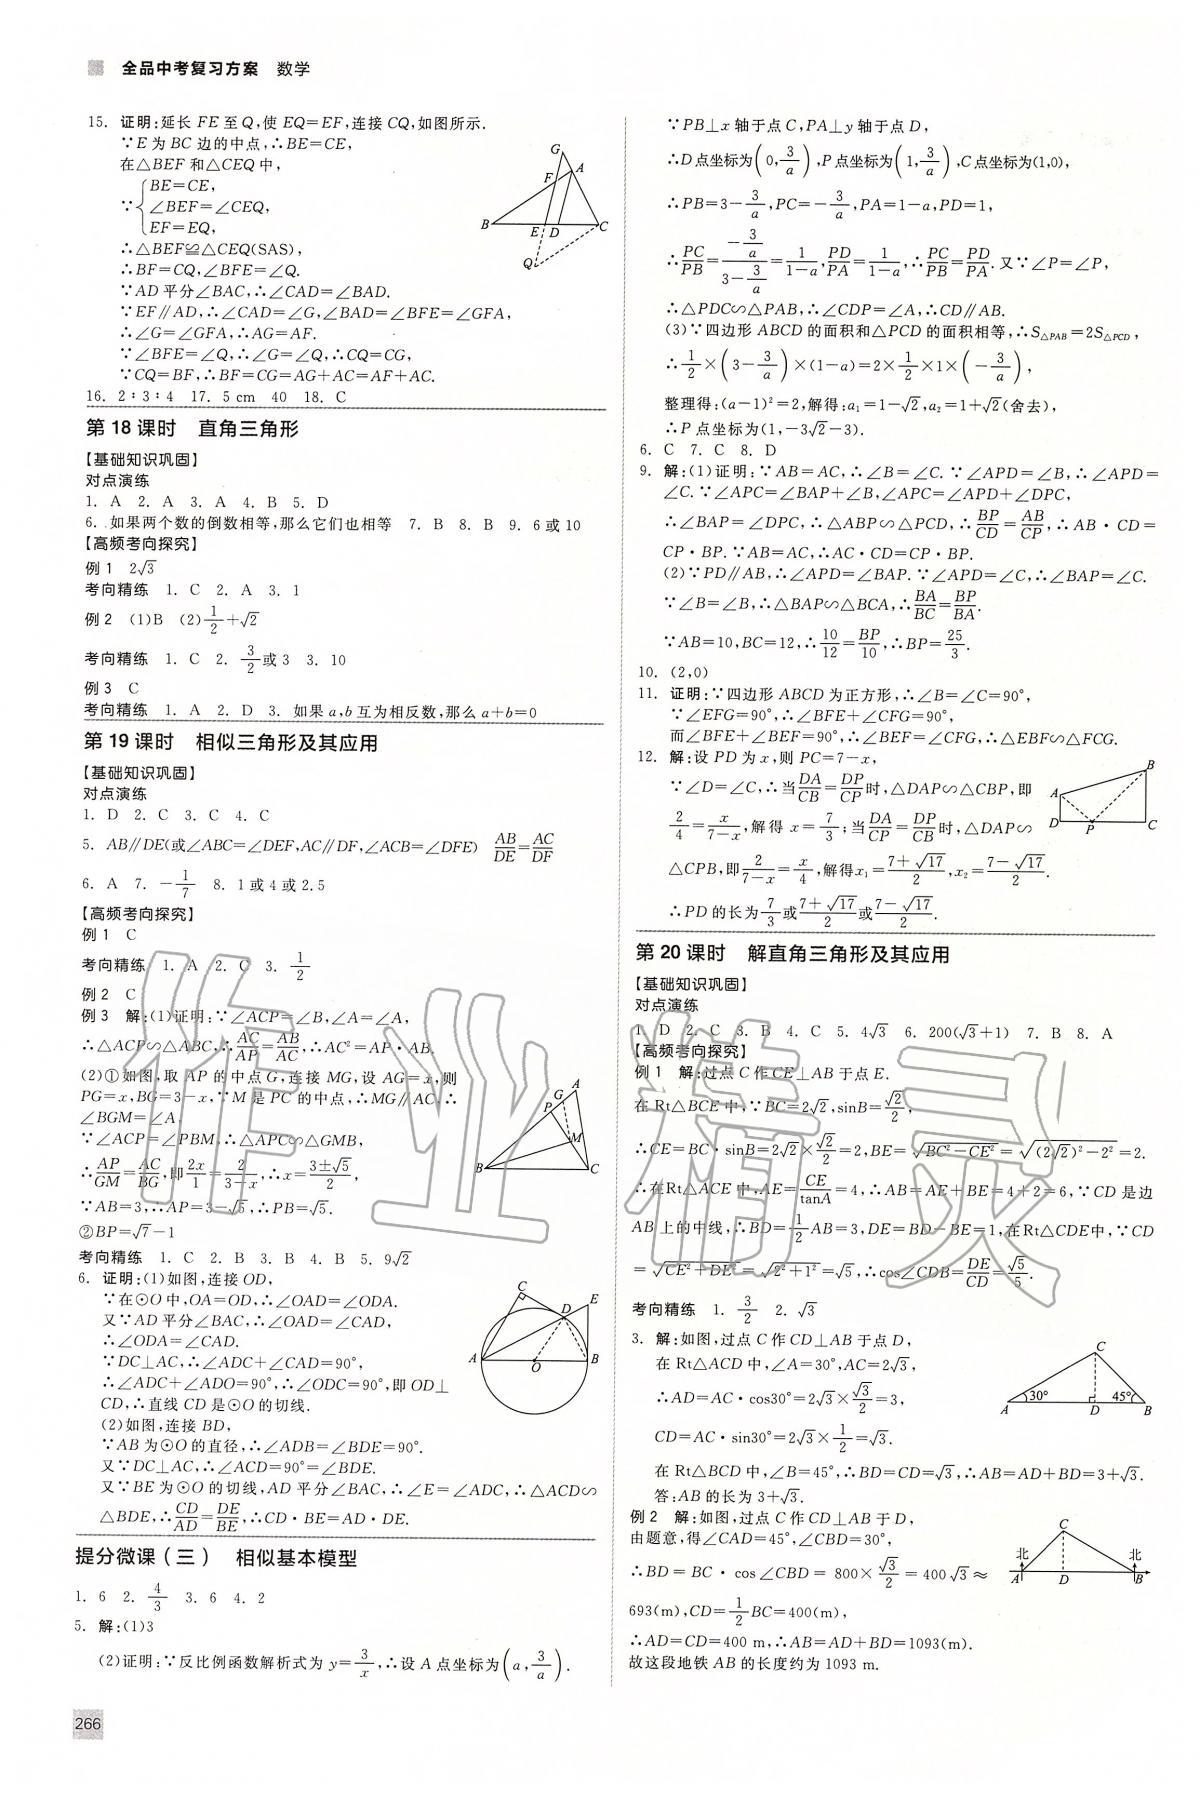 全品中考复习方案　数学
15. 证明:延长 FE 至 Q,使 EQ=EF,连接 CQ,如图所示.
∵E 为 BC 边的中点,∴BE=CE,
在△BEF 和△CEQ 中,
∵{BE=CE,
∠BEF=∠CEQ,
EF=EQ,
∴△BEF≌△CEQ(SAS),
∴BF=CQ,∠BFE=∠Q.
∵AD 平分∠BAC,∴∠CAD=∠BAD.
∵EF∥AD,∴∠CAD=∠G,∠BAD=∠BFE=∠GFA,
∴∠G=∠GFA,∴AG=AF.
∵∠BFE=∠Q,∴∠G=∠Q,∴CQ=CG,
∵CQ=BF,∴BF=CG=AG+AC=AF+AC.
G
F
A
B
E
D
C
Q
16. 2∶3∶4　17. 5 cm　40　18. C
第 18 课时　直角三角形
【基础知识巩固】
对点演练
1. A　2. A　3. A　4. B　5. D
6. 如果两个数的倒数相等,那么它们也相等　7. B　8. B　9. 6 或 10
【高频考向探究】
例 1　2√3
考向精练　1. C　2. A　3. 1
例 2　(1)B　(2)1/2+√2
考向精练　1. C　2. 3/2或 3　3. 10
例 3　C
考向精练　1. A　2. D　3. 如果 a,b 互为相反数,那么 a+b=0
第 19 课时　相似三角形及其应用
【基础知识巩固】
对点演练
1. D　2. C　3. C　4. C
5. AB∥DE(或∠ABC=∠DEF,AC∥DF,∠ACB=∠DFE)　AB/DE=AC/DF
6. A　7. -1/7　8. 1 或 4 或 2.5
【高频考向探究】
例 1　C
考向精练　1. A　2. C　3. 1/2
例 2　C
例 3　解:(1)证明:∵∠ACP=∠B,∠A=∠A,
∴△ACP∽△ABC,∴AC/AP=AB/AC,∴AC²=AP·AB.
(2)①如图,取 AP 的中点 G,连接 MG,设 AG=x,则
PG=x,BG=3-x,∵M 是 PC 的中点,∴MG∥AC,∴
∠BGM=∠A,
∵∠ACP=∠PBM,∴△APC∽△GMB,
∴AP/GM=AC/BG,即2x/1=2/(3-x),∴x=(3±√5)/2,
∵AB=3,∴AP=3-√5,∴PB=√5.
②BP=√7-1
A
G
P
M
B
C
考向精练　1. C　2. B　3. B　4. B　5. 9√2
6. 证明:(1)如图,连接 OD,
∵在⊙O 中,OA=OD,∴∠OAD=∠ODA.
又∵AD 平分∠BAC,∴∠OAD=∠CAD,
∴∠ODA=∠CAD.
∵DC⊥AC,∴∠ADC+∠CAD=90°,
∴∠ADC+∠ADO=90°,∴∠ODC=90°,即 OD⊥
CD,∴直线 CD 是⊙O 的切线.
(2)如图,连接 BD,
∵AB 为⊙O 的直径,∴∠ADB=∠BDE=90°.
又∵DC⊥AC,∴∠ACD=90°=∠BDE.
又∵BE 为⊙O 的切线,AD 平分∠BAC,∴∠E=∠ADC,∴△ACD∽
△BDE,∴CD/AD=DE/BE,∴CD·BE=AD·DE.
C
D
E
A
O
B
提分微课(三)　相似基本模型
1. 6　2. 4/3　3. 6　4. 2
5. 解:(1)3
(2)证明:∵反比例函数解析式为 y=3/x,∴设 A 点坐标为(a,3/a).
266
∵PB⊥x 轴于点 C,PA⊥y 轴于点 D,
∴D 点坐标为(0,3/a),P 点坐标为(1,3/a),C 点坐标为(1,0),
∴PB=3-3/a,PC=-3/a,PA=1-a,PD=1,
∴PC/PB=(-3/a)/(3-3/a)=1/(1-a),PD/PA=1/(1-a),∴PC/PB=PD/PA.又∵∠P=∠P,
∴△PDC∽△PAB,∴∠CDP=∠A,∴CD∥AB.
(3)∵四边形 ABCD 的面积和△PCD 的面积相等,∴S△PAB=2S△PCD,
∴1/2×(3-3/a)×(1-a)=2×1/2×1×(-3/a),
整理得:(a-1)²=2,解得:a₁=1-√2,a₂=1+√2(舍去),
∴P 点坐标为(1,-3√2-3).
6. C　7. C　8. D
9. 解:(1)证明:∵AB=AC,∴∠B=∠C. ∵∠APD=∠B,∴∠APD=
∠C. ∵∠APC=∠BAP+∠B,∠APC=∠APD+∠DPC,
∴∠BAP=∠DPC,∴△ABP∽△PCD,∴BP/CD=AB/CP,∴AB·CD=
CP·BP. ∵AB=AC,∴AC·CD=CP·BP.
(2)∵PD∥AB,∴∠APD=∠BAP. ∵∠APD=∠C,∴∠BAP=∠C.
∵∠B=∠B,∴△BAP∽△BCA,∴BA/BC=BP/BA.
∵AB=10,BC=12,∴10/12=BP/10,∴BP=25/3.
10. (2,0)
11. 证明:∵四边形 ABCD 为正方形,∴∠B=∠C=90°,
∵∠EFG=90°,∴∠BFE+∠CFG=90°,
而∠BFE+∠BEF=90°,∴∠BEF=∠CFG,∴△EBF∽△FCG.
12. 解:设 PD 为 x,则 PC=7-x,
∵∠D=∠C,∴当DA/CB=DP/CP时,△DAP∽△CBP,即
2/4=x/(7-x),解得 x=7/3;当DA/CP=DP/CB时,△DAP∽
△CPB,即2/(7-x)=x/4,解得x₁=(7+√17)/2,x₂=(7-√17)/2.
∴PD 的长为7/3或(7+√17)/2或(7-√17)/2.
B
A
D
P
C
第 20 课时　解直角三角形及其应用
【基础知识巩固】
对点演练
1. D　2. C　3. B　4. C　5. 4√3　6. 200(√3+1)　7. B　8. A
【高频考向探究】
例 1　解:过点 C 作 CE⊥AB 于点 E.
在 Rt△BCE 中,∵BC=2√2,sinB=√2/2,
∴CE=BC·sinB=2√2×√2/2=2,BE=√(BC²-CE²)=√((2√2)²-2²)=2.
∴在Rt△ACE 中,AE=CE/tanA=4,∴AB=AE+BE=4+2=6,∵CD 是边
AB 上的中线,∴BD=1/2AB=3,DE=BD-BE=1,在Rt△CDE中,∵CD
=√(CE²+DE²)=√(2²+1²)=√5,∴cos∠CDB=DE/CD=√5/5.
考向精练　1. 3/2　2. √3
3. 解:如图,过点 C 作 CD⊥AB 于点 D,
在 Rt△ACD 中,∠A=30°,AC=2√3,
∴AD=AC·cos30°=2√3×√3/2=3,
CD=AC·sin30°=2√3×1/2=√3.
在 Rt△BCD 中,∠B=45°,∴BD=CD=√3,∴AB=AD+BD=3+√3.
答:AB 的长为 3+√3.
C
30°
45°
A
D
B
例 2　解:如图,过点 C 作 CD⊥AB 于 D,
由题意,得∠CAD=45°,∠CBD=30°,
∴BD=BC·cos∠CBD=800×√3/2=400√3≈
693(m),CD=1/2BC=400(m),
∴AD=CD=400 m,∴AB=AD+BD=1093(m).
故这段地铁 AB 的长度约为 1093 m.
C
北
北
A
D
B
作业精灵